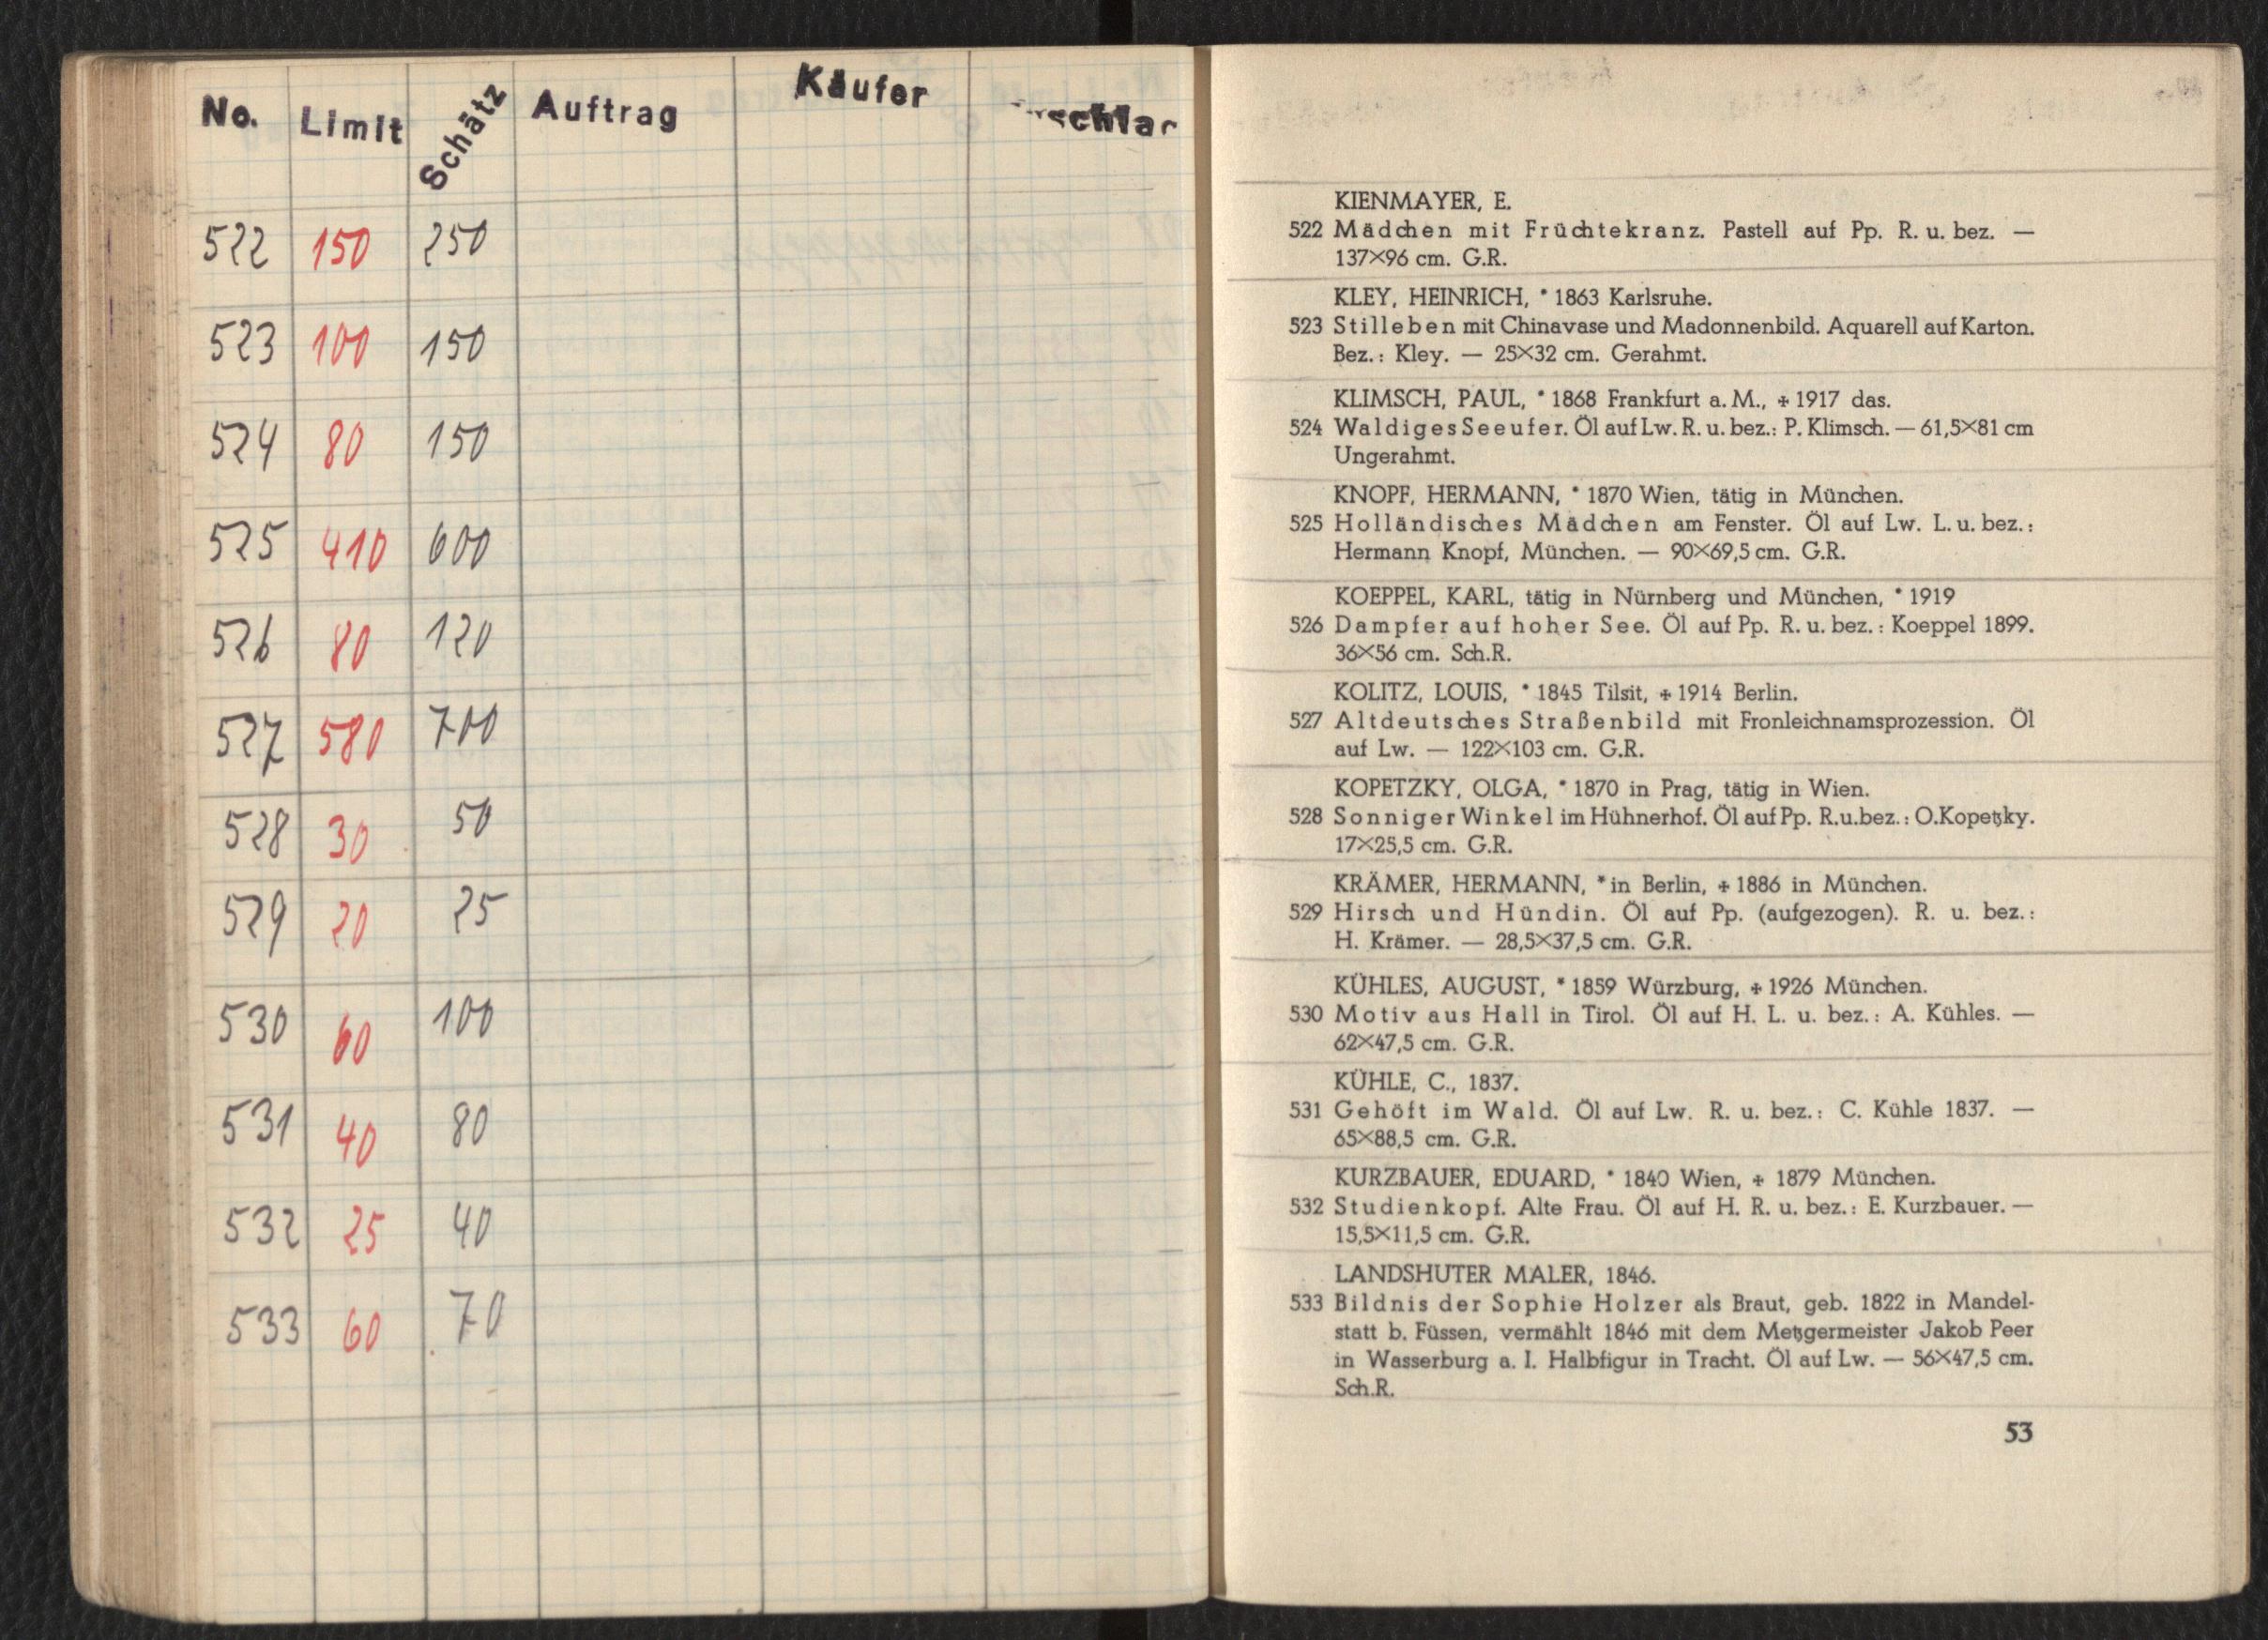 No. Limit Schätz Auftrag Käufer
522 150 250
523 100 150
524 80 150
525 410 600
526 80 120
527 580 700
528 30 50
529 20 25
530 60 100
531 40 80
532 25 40
533 60 70
KIENMAYER, E.
522 Mädchen mit Früchtekranz. Pastell auf Pp. R. u. bez. —
137×96 cm. G.R.
KLEY, HEINRICH, * 1863 Karlsruhe.
523 Stilleben mit Chinavase und Madonnenbild. Aquarell auf Karton.
Bez.: Kley. — 25×32 cm. Gerahmt.
KLIMSCH, PAUL, * 1868 Frankfurt a. M., + 1917 das.
524 Waldiges Seeufer. Öl auf Lw. R. u. bez.: P. Klimsch. — 61,5×81 cm
Ungerahmt.
KNOPF, HERMANN, * 1870 Wien, tätig in München.
525 Holländisches Mädchen am Fenster. Öl auf Lw. L. u. bez.:
Hermann Knopf, München. — 90×69,5 cm. G.R.
KOEPPEL, KARL, tätig in Nürnberg und München, * 1919
526 Dampfer auf hoher See. Öl auf Pp. R. u. bez.: Koeppel 1899.
36×56 cm. Sch.R.
KOLITZ, LOUIS, * 1845 Tilsit, + 1914 Berlin.
527 Altdeutsches Straßenbild mit Fronleichnamsprozession. Öl
auf Lw. — 122×103 cm. G.R.
KOPETZKY, OLGA, * 1870 in Prag, tätig in Wien.
528 Sonniger Winkel im Hühnerhof. Öl auf Pp. R.u.bez.: O.Kopetzky.
17×25,5 cm. G.R.
KRÄMER, HERMANN, * in Berlin, + 1886 in München.
529 Hirsch und Hündin. Öl auf Pp. (aufgezogen). R. u. bez.:
H. Krämer. — 28,5×37,5 cm. G.R.
KÜHLES, AUGUST, * 1859 Würzburg, + 1926 München.
530 Motiv aus Hall in Tirol. Öl auf H. L. u. bez.: A. Kühles. —
62×47,5 cm. G.R.
KÜHLE, C., 1837.
531 Gehöft im Wald. Öl auf Lw. R. u. bez.: C. Kühle 1837. —
65×88,5 cm. G.R.
KURZBAUER, EDUARD, * 1840 Wien, + 1879 München.
532 Studienkopf. Alte Frau. Öl auf H. R. u. bez.: E. Kurzbauer. —
15,5×11,5 cm. G.R.
LANDSHUTER MALER, 1846.
533 Bildnis der Sophie Holzer als Braut, geb. 1822 in Mandel-
statt b. Füssen, vermählt 1846 mit dem Metzgermeister Jakob Peer
in Wasserburg a. I. Halbfigur in Tracht. Öl auf Lw. — 56×47,5 cm.
Sch.R.
53